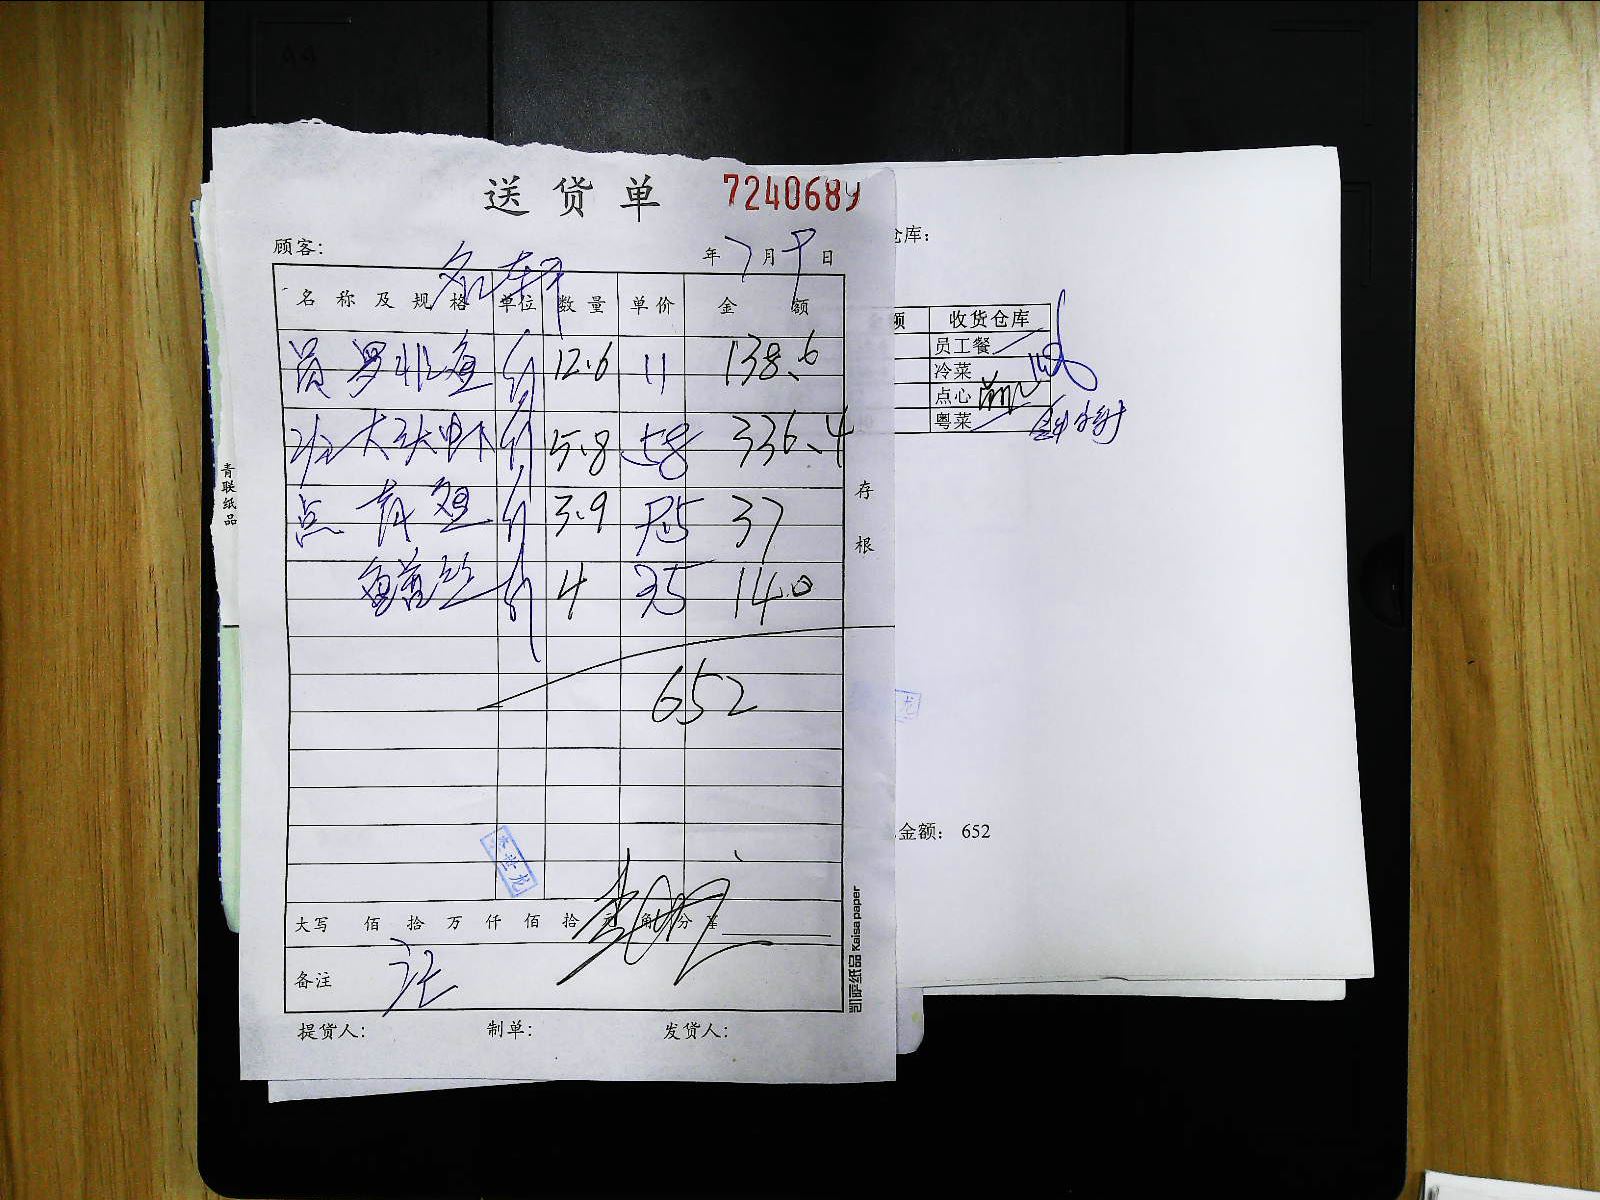 送货单 7240689
顾客: 名轩 年7月9日
名称及规格 单位 数量 单价 金额
员 罗非鱼 斤 12.6 11 138.6
大头虾 斤 5.8 58 336.4
点 青鱼 斤 3.9 9.5 37
鳝丝 斤 4 35 140
652
大写 佰 拾 万 仟 佰 拾 元 角 分 ¥
备注
提货人: 制单: 发货人:
存根
青联纸品
凯萨纸品 Kaisa paper
仓库:
额 收货仓库
员工餐
冷菜
点心
粤菜
龙
金额: 652